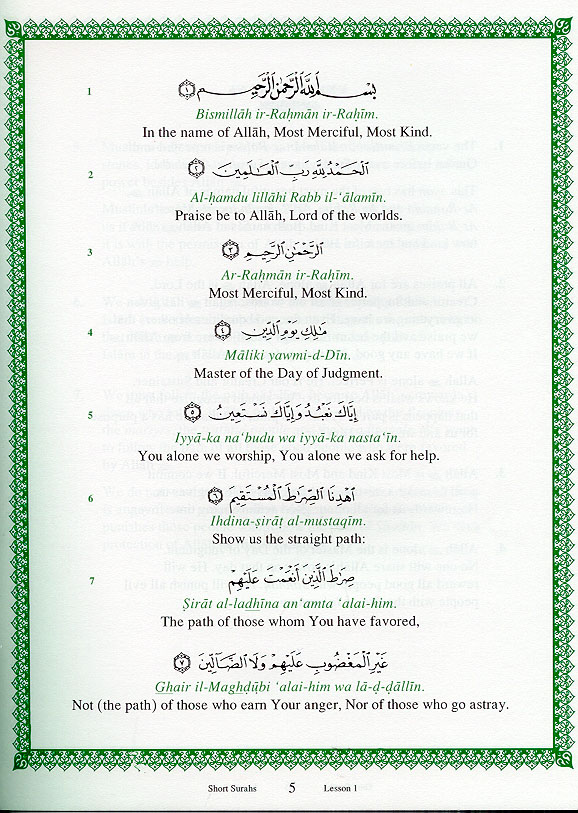 1 بِسْمِ اللَّهِ الرَّحْمَٰنِ الرَّحِيمِ ١
Bismillāh ir-Raḥmān ir-Raḥīm.
In the name of Allāh, Most Merciful, Most Kind.
2 الْحَمْدُ لِلَّهِ رَبِّ الْعَالَمِينَ ٢
Al-ḥamdu lillāhi Rabb il-‘ālamīn.
Praise be to Allāh, Lord of the worlds.
3 الرَّحْمَٰنِ الرَّحِيمِ ٣
Ar-Raḥmān ir-Raḥīm.
Most Merciful, Most Kind.
4 مَالِكِ يَوْمِ الدِّينِ ٤
Māliki yawmi-d-Dīn.
Master of the Day of Judgment.
5 إِيَّاكَ نَعْبُدُ وَإِيَّاكَ نَسْتَعِينُ ٥
Iyyā-ka na‘budu wa iyyā-ka nasta‘īn.
You alone we worship, You alone we ask for help.
6 اهْدِنَا الصِّرَاطَ الْمُسْتَقِيمَ ٦
Ihdina-ṣirāṭ al-mustaqīm.
Show us the straight path:
7 صِرَاطَ الَّذِينَ أَنْعَمْتَ عَلَيْهِمْ
Ṣirāt al-ladhīna an‘amta ‘alai-him.
The path of those whom You have favored,
غَيْرِ الْمَغْضُوبِ عَلَيْهِمْ وَلَا الضَّالِّينَ ٧
Ghair il-Maghḍūbi ‘alai-him wa lā-ḍ-ḍāllīn.
Not (the path) of those who earn Your anger, Nor of those who go astray.
Short Surahs 5 Lesson 1